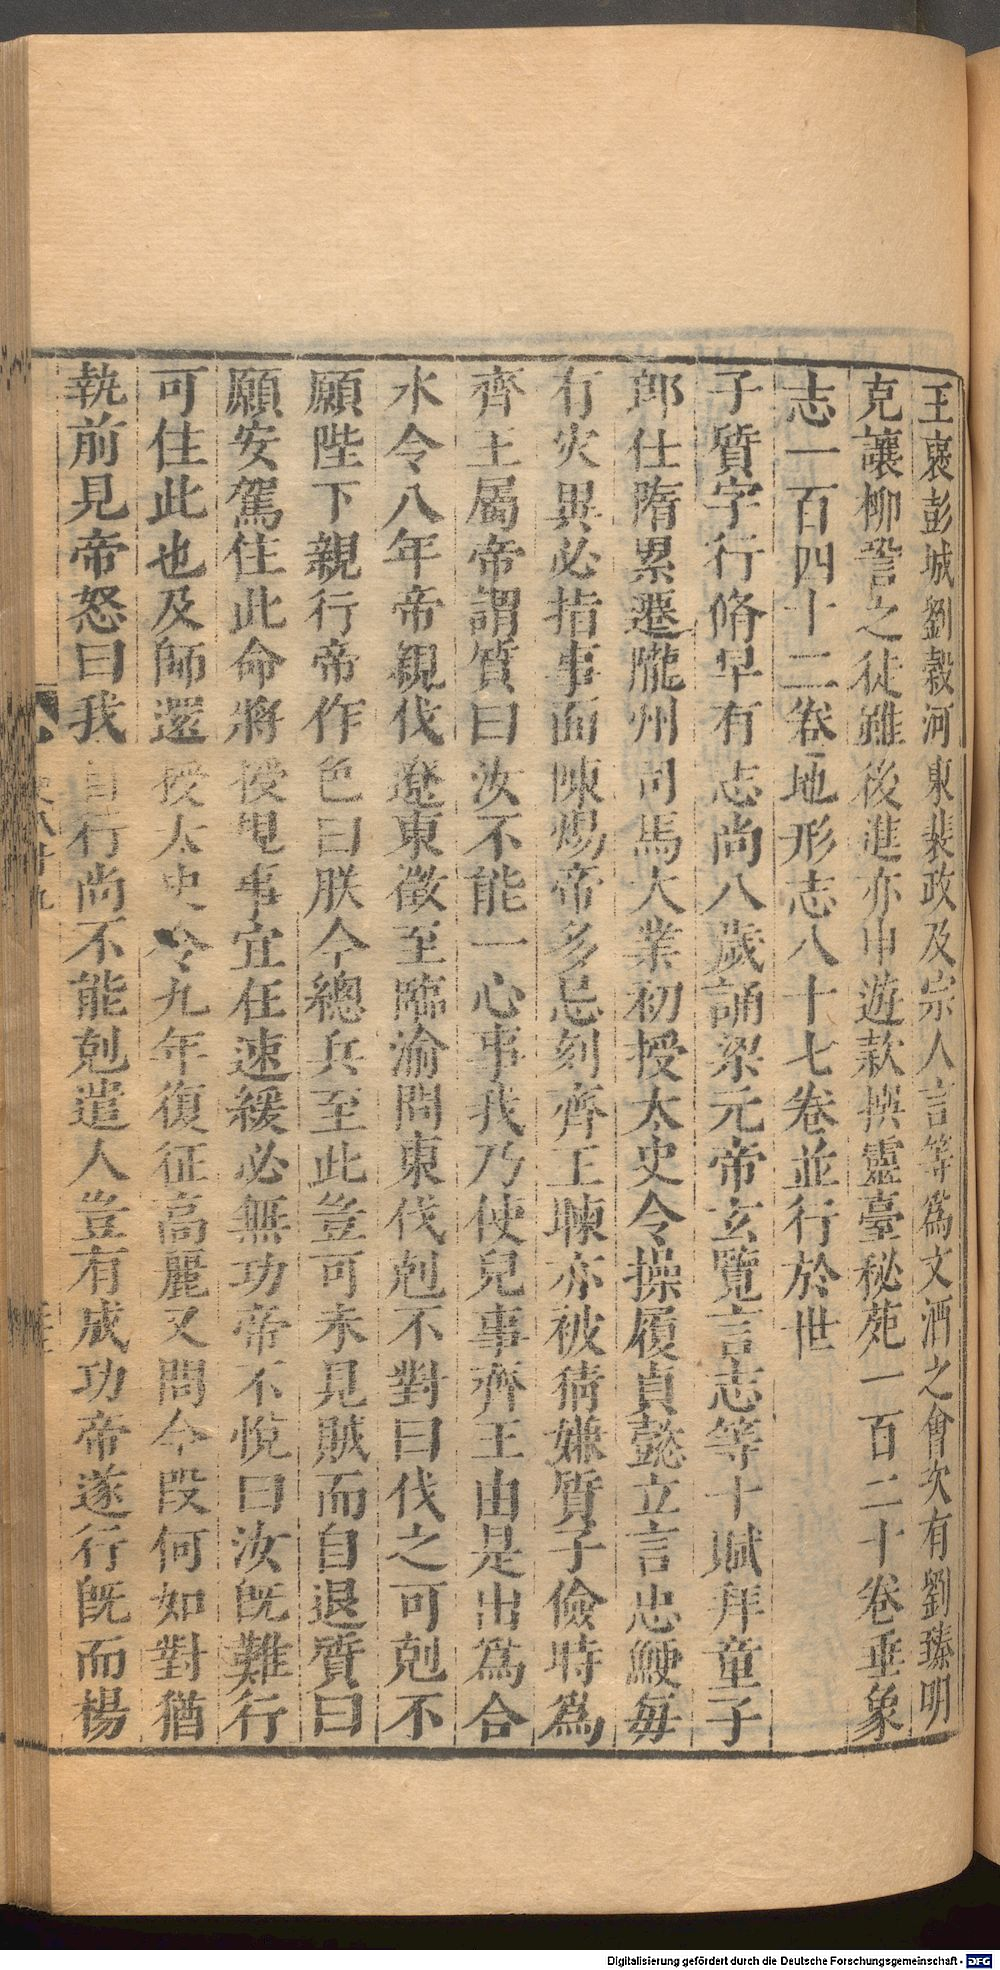 王褒彭城劉瑴河東裴政及宗人言等爲文酒之會次有劉臻明
克讓柳䛒之徒雖後進亦申遊款撰靈臺秘苑一百二十卷垂象
志一百四十二卷地形志八十七卷並行於世
子質字行脩早有志尚八歲誦梁元帝玄覽言志等十賦拜童子
郎仕隋累遷隴州司馬大業初授太史令操履貞懿立言忠鯁毎
有災異必指事面陳煬帝多忌刻齊王暕亦被猜嫌質子儉時爲
齊王屬帝謂質曰汝不能一心事我乃使兒事齊王由是出爲合
水令八年帝親伐遼東徵至臨渝問東伐剋不對曰伐之可剋不
願陛下親行帝作色曰朕今總兵至此豈可未見賊而自退質曰
願安駕住此命將授規事宜在速緩必無功帝不悅曰汝旣難行
可住此也及師還授太史令九年復征高麗又問今段何如對猶
執前見帝怒曰我自行尚不能剋遣人豈有成功帝遂行旣而楊
Digitalisierung gefördert durch die Deutsche Forschungsgemeinschaft - DFG